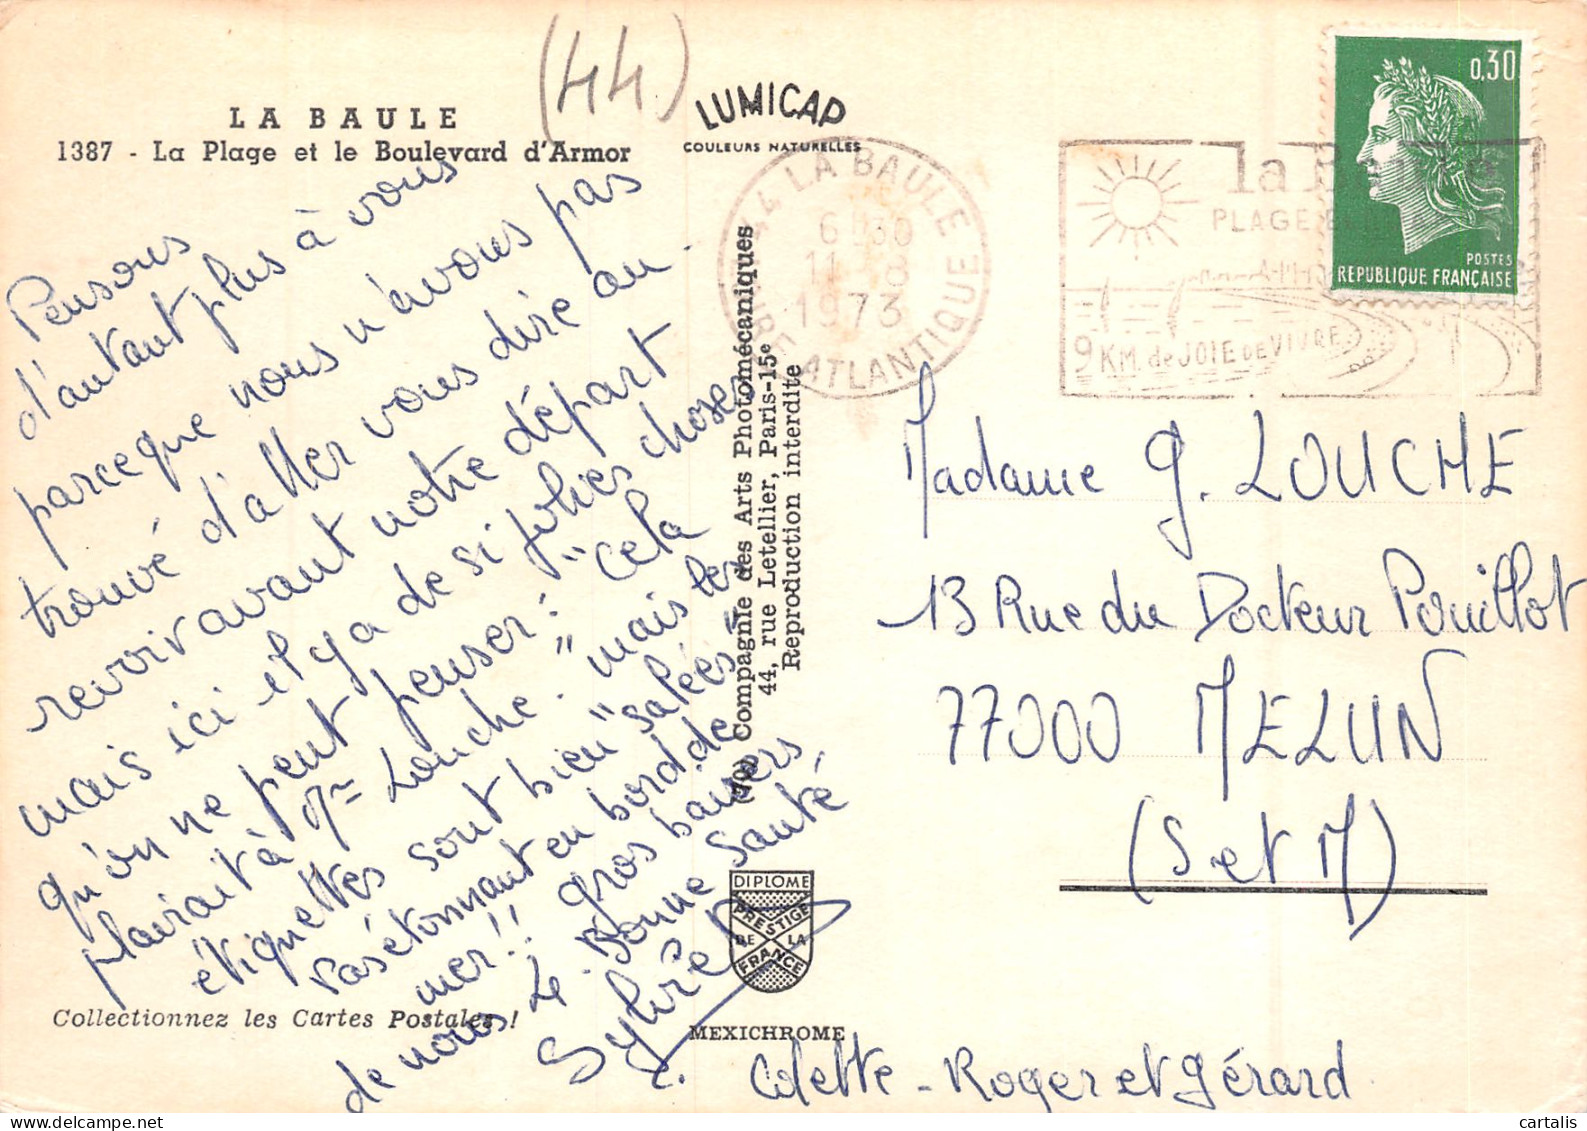 LA BAULE
1387 - La Plage et le Boulevard d'Armor
(44)
LUMICAP
COULEURS NATURELLES
44 LA BAULE
LOIRE ATLANTIQUE
6H30
11 - 8
1973
la B
PLAGE
9 KM. de JOIE DE VIVRE
0,30
POSTES
REPUBLIQUE FRANÇAISE
Pensons
d'autant plus à vous
parceque nous n'avons pas
trouvé d'aller vous dire au-
revoir avant notre départ
mais ici il y a de si jolies choses
qu'on ne peut penser : "cela
plairait à Mme Louche" mais les
étiquettes sont bien "salées"
pas étonnant en bord de
mer!! gros baisers
de nous Bonne Santé
Sylvie
Colette - Roger et Gérard
Compagnie des Arts Photomécaniques
44, rue Letellier, Paris-15e
Reproduction interdite
Madame G. LOUCHE
13 Rue du Docteur Pouillot
77000 MELUN
(S et M)
DIPLOME
PRESTIGE
DE LA
FRANCE
Collectionnez les Cartes Postales !
MEXICHROME
cartalis